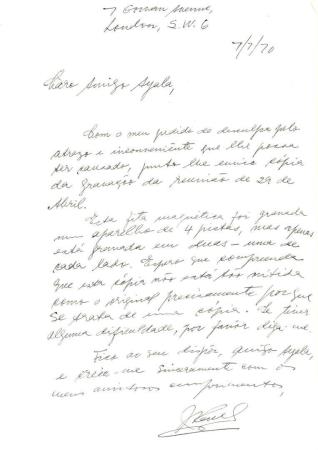 7 Gowan Avenue,
London, S.W.6
7/7/70
Caro Amigo Ayala,
Com o meu pedido de desculpa pelo
atrazo e inconveniente que lhe possa
ter causado, junto lhe envio cópia
da gravação da reunião de 29 de
Abril.
Esta fita magnética foi gravada
num aparelho de 4 pistas, mas apenas
está gravada em duas - uma de
cada lado. Espero que compreenda
que esta cópia não está tão nitida
como o original precisamente porque
se trata de uma cópia. Se tiver
alguma dificuldade, por favor diga-me.
Fico ao seu dispôr, amigo Ayala,
e creia-me sinceramente com os
meus amistosos cumprimentos,